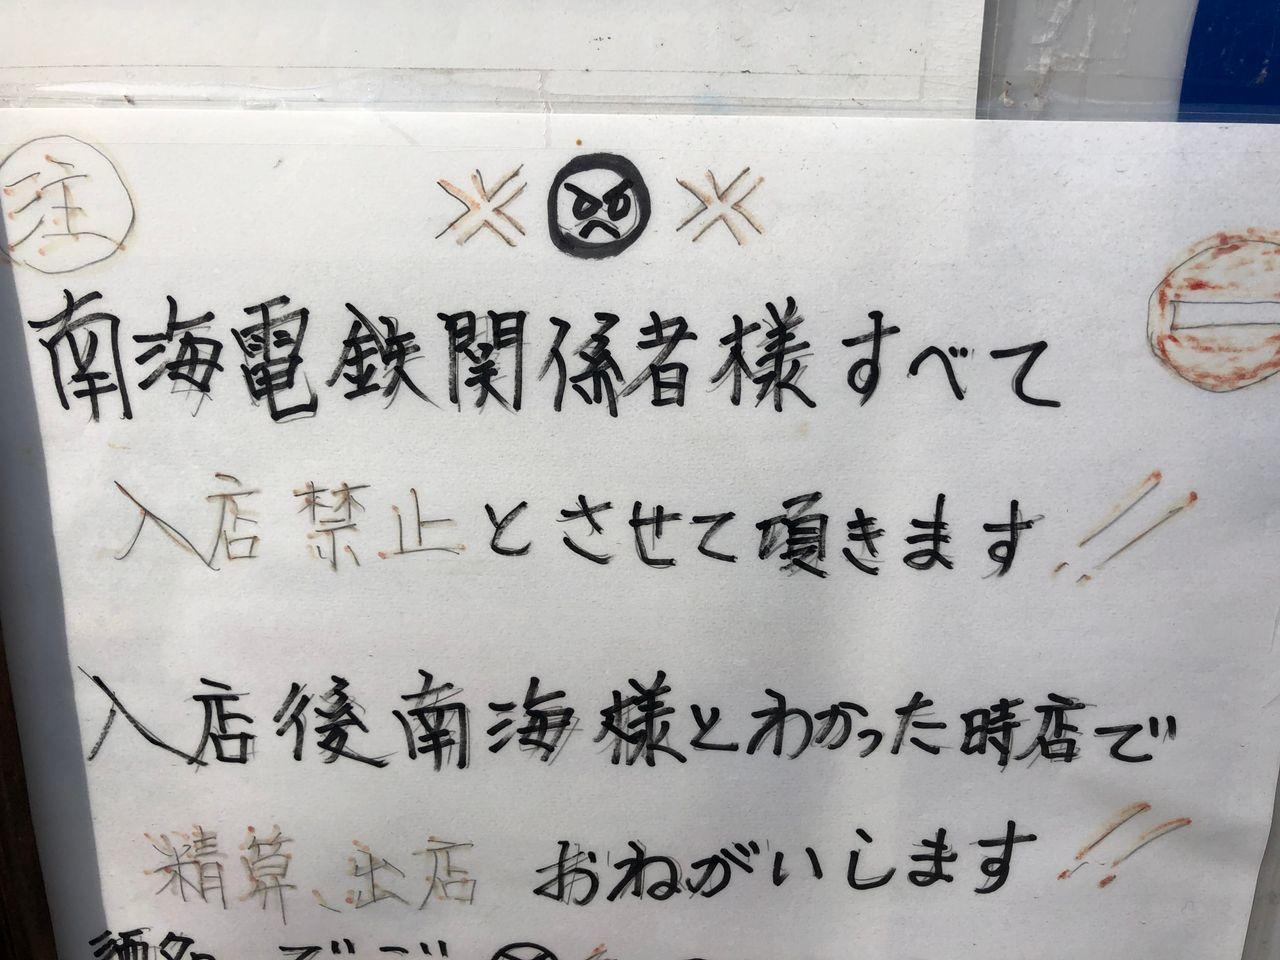 注
※ ※
南海電鉄関係者様すべて
入店禁止とさせて頂きます!!
入店後南海様とわかった時店で
精算、出店 おねがいします!!